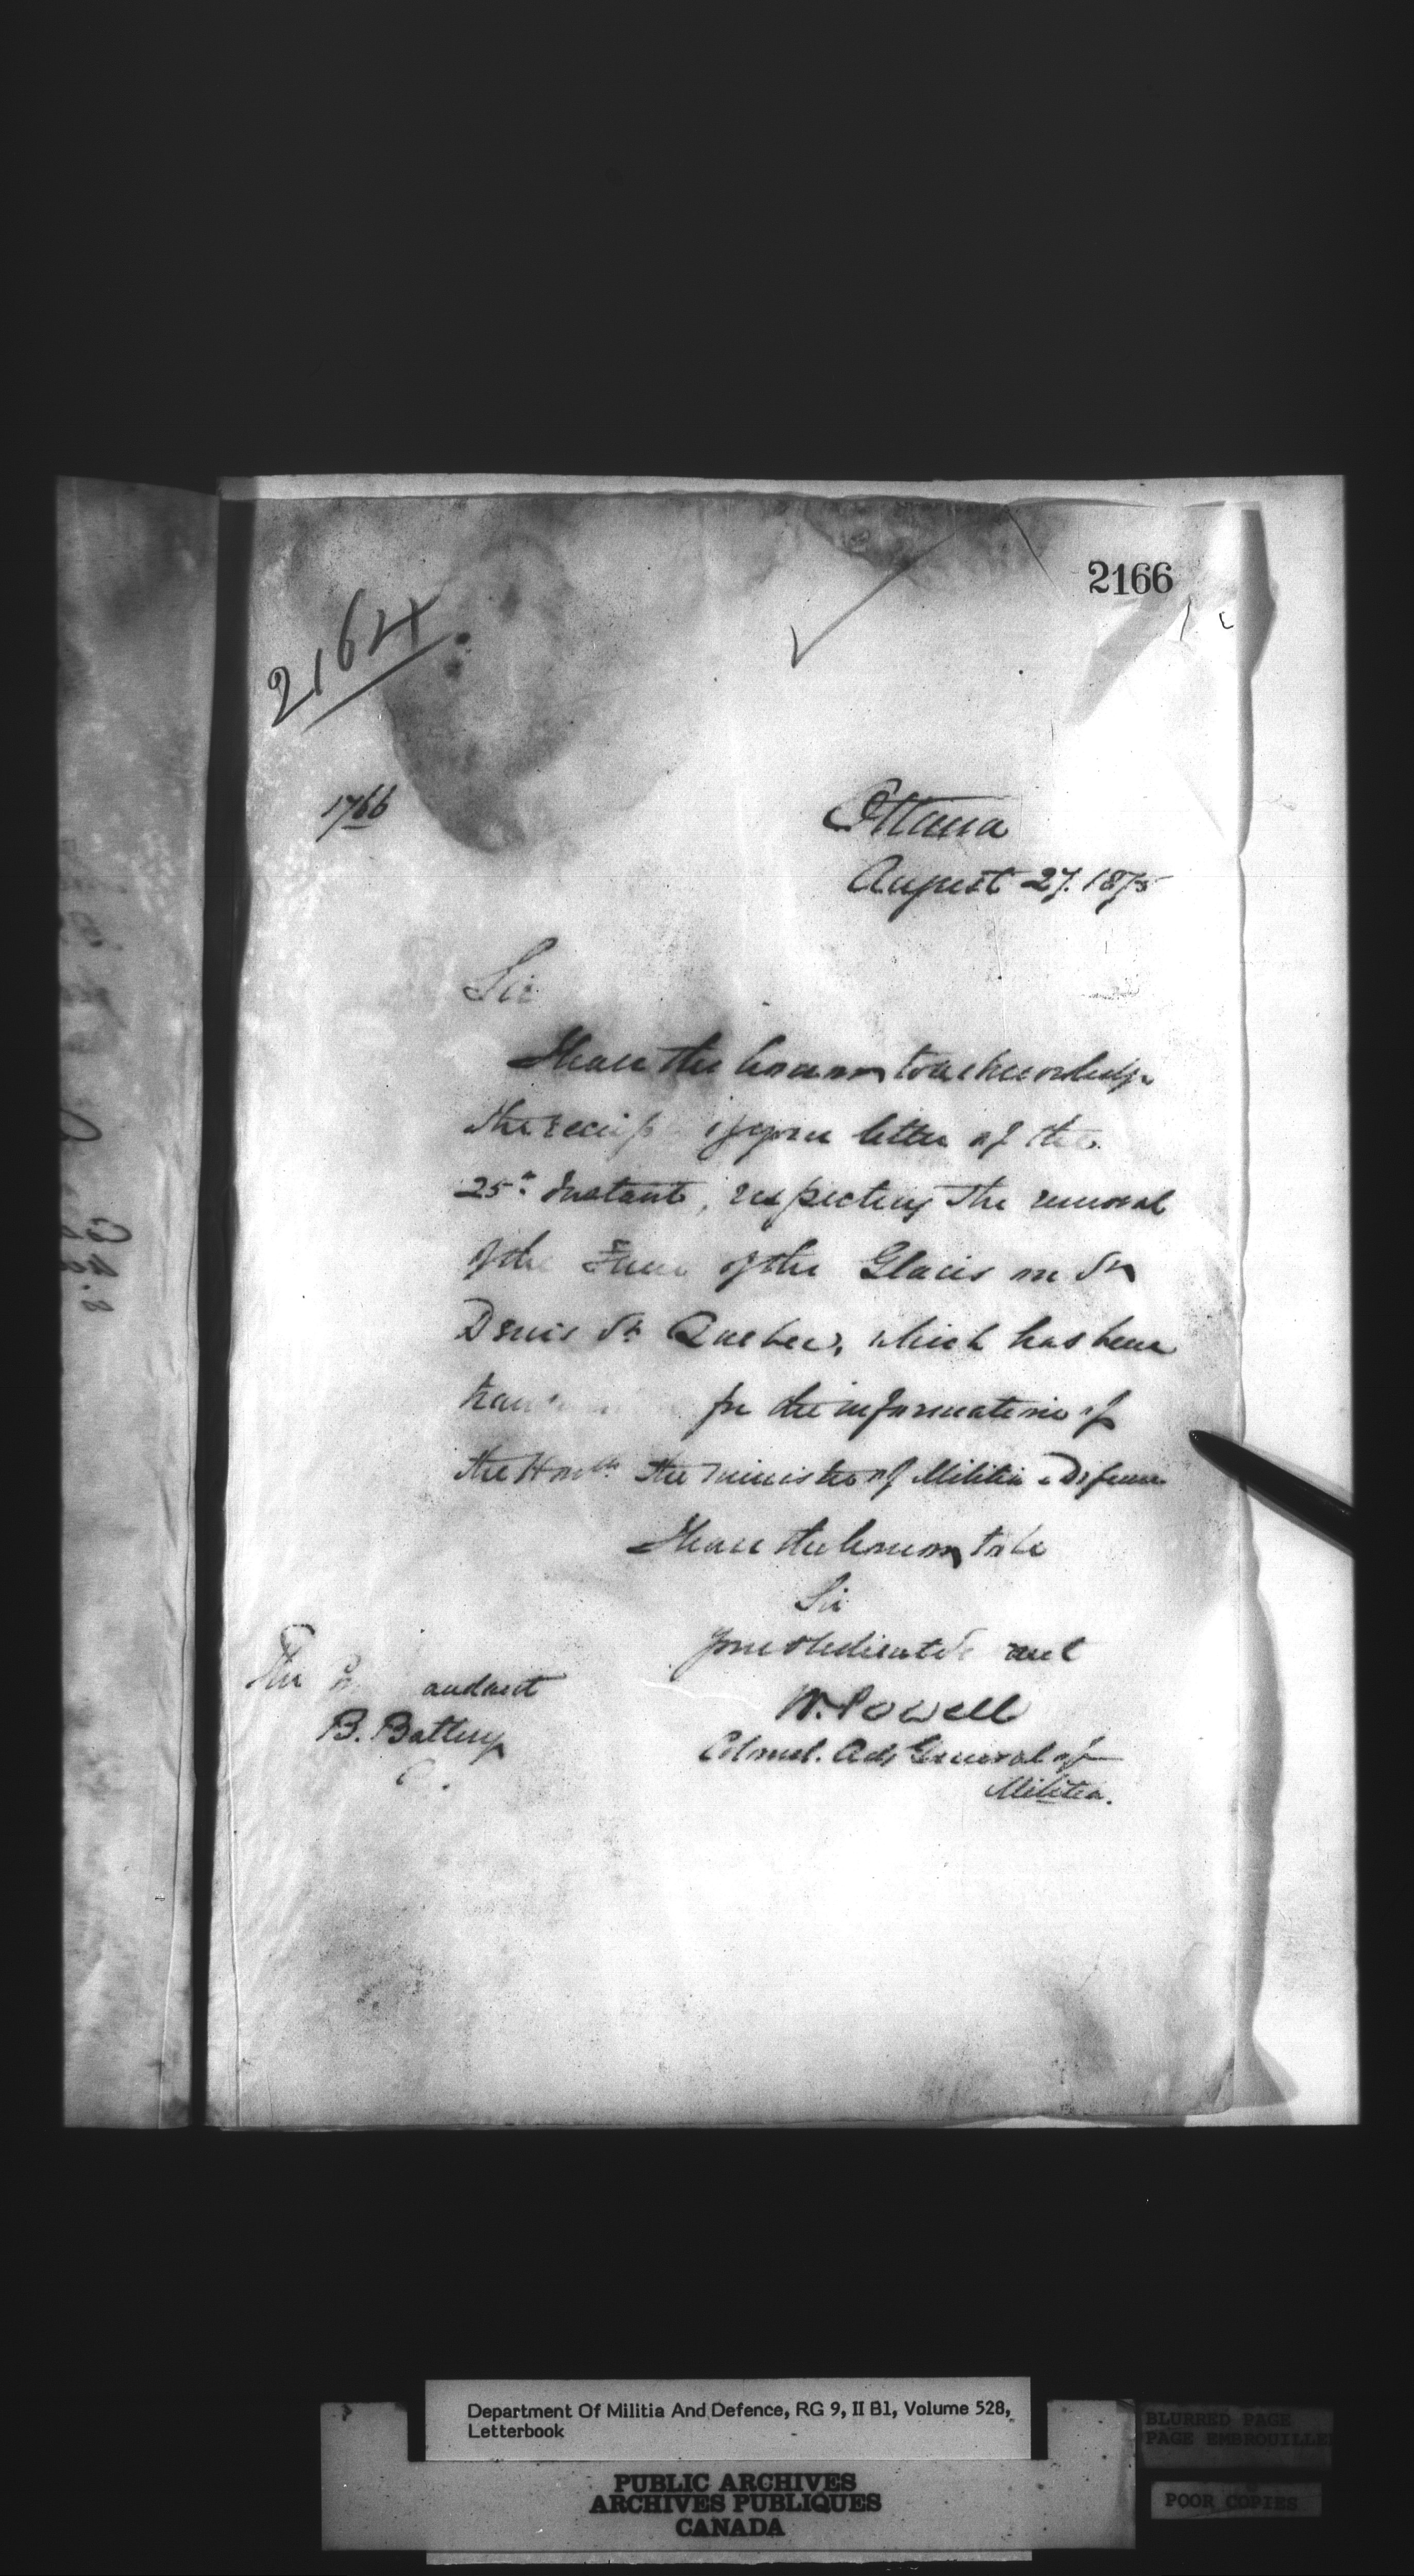 2166
2164
1766
Ottawa
August 27. 1875
Sir
I have the honour to acknowledge
the receipt of your letter of the
25th Instant, respecting the removal
of the Fence of the Glacis on St
Denis St. Quebec, which has been
for the information of
the Honble the Minister of Militia & Defence
I have the honour to be
Sir
your obedient Servant
The Commandant
W. Powell
B. Battery
Colonel. Adj General of
Militia.
Department Of Militia And Defence, RG 9, II B1, Volume 528,
Letterbook
PUBLIC ARCHIVES
ARCHIVES PUBLIQUES
CANADA
BLURRED PAGE
PAGE EMBROUILLE
POOR COPIES